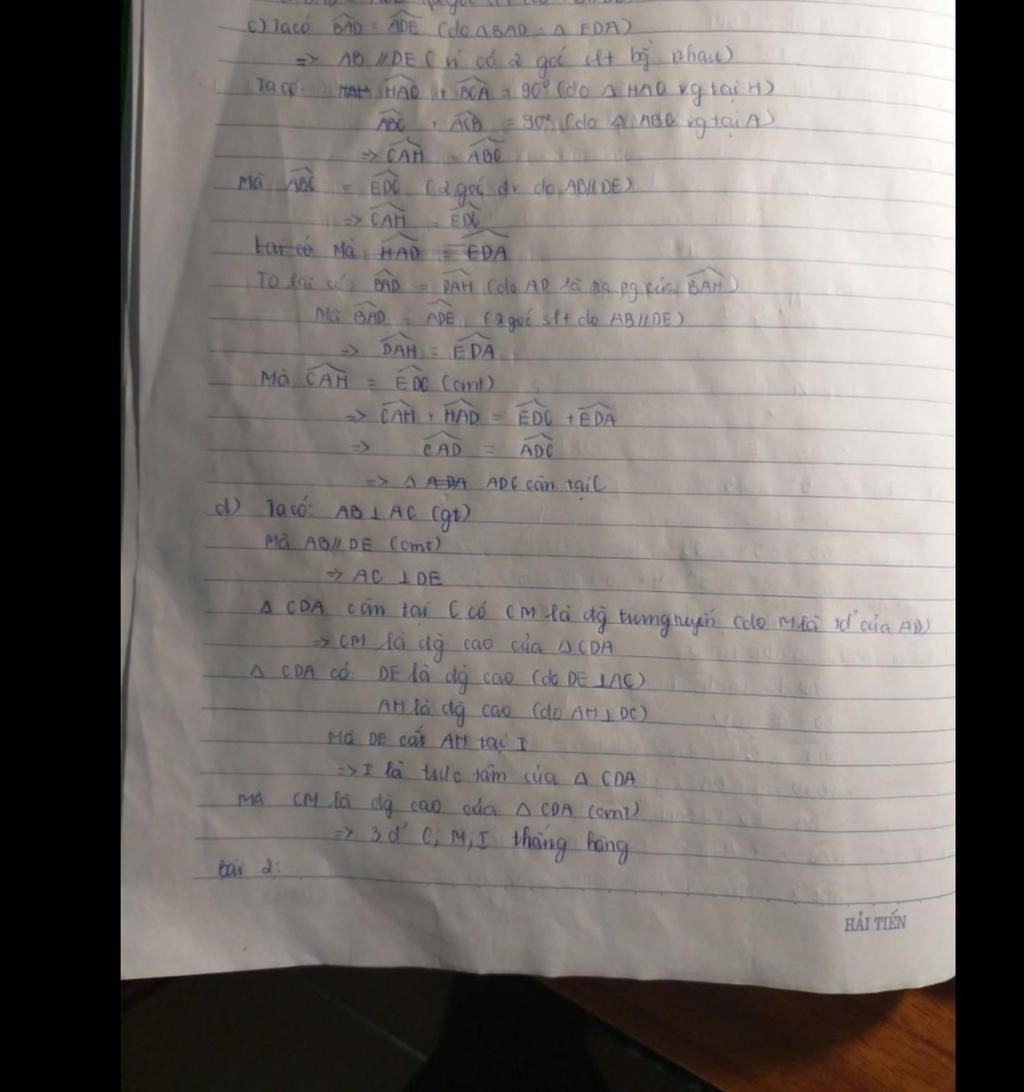 c) Ta có BAD = ADE (do ΔBAD = Δ EDA)
=> AB // DE (vì có 2 góc slt bg nhau)
Ta có: HAC + BCA = 90° (do Δ HAC vg tại H)
ABC + ACB = 90° (do Δ ABC vg tại A)
=> CAH = ABC
Mà ABC = EDC (2 góc đv do AB//DE)
=> CAH = EDC
Mà HAD = EDA
Ta lại có: BAD = DAH (do AD là tia pg của BAH)
Mà BAD = ADE (2 góc slt do AB//DE)
=> DAH = EDA
Mà CAH = EDC (cmt)
=> CAH + HAD = EDC + EDA
=> CAD = ADC
=> Δ ADC cân tại C
d) Ta có: AB ⊥ AC (gt)
Mà AB // DE (cmt)
=> AC ⊥ DE
Δ CDA cân tại C có CM là đg trung tuyến (do M là tđ của AD)
=> CM là đg cao của Δ CDA
Δ CDA có: DE là đg cao (do DE ⊥ AC)
AH là đg cao (do AH ⊥ DC)
Mà DE cắt AH tại I
=> I là trực tâm của Δ CDA
Mà CM là đg cao của Δ CDA (cmt)
=> 3 đ' C, M, I thẳng hàng
Bài 2:
HẢI TIẾN